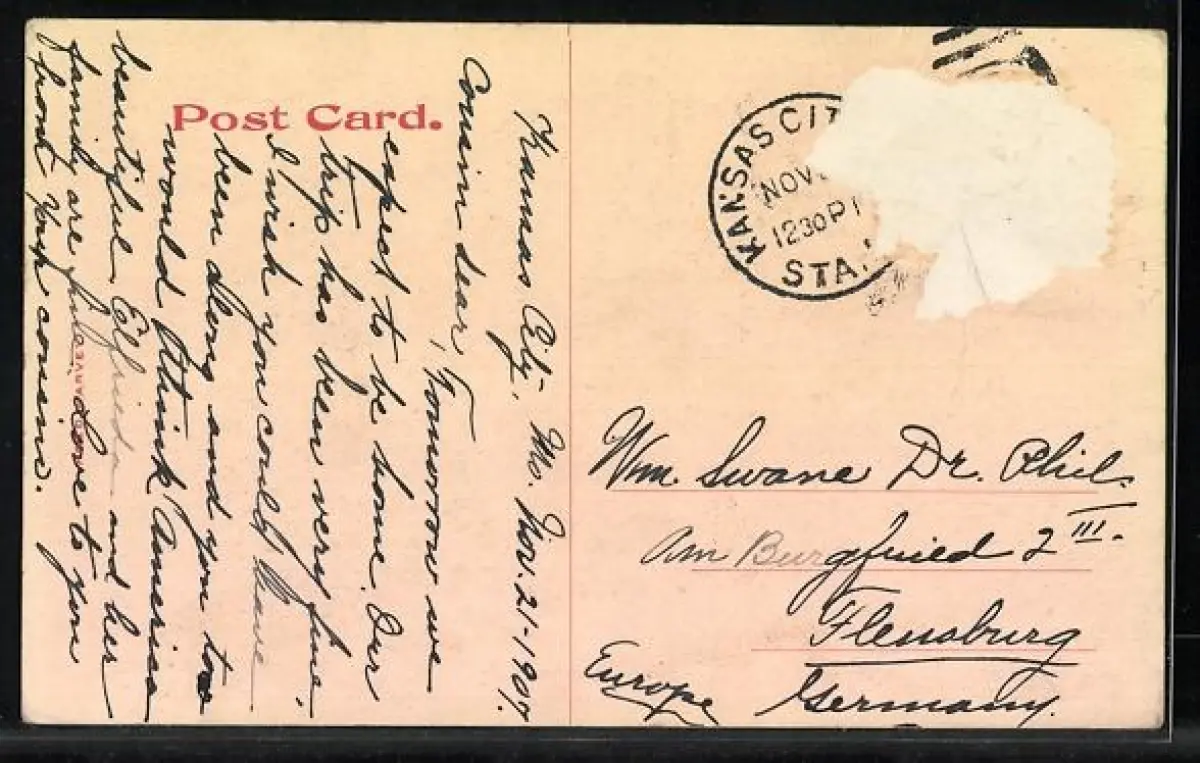 Post Card.
Kansas City, Mo. Nov. 21-1907.
Cousin dear, Tomorrow we
expect to be home. Our
trip has been very fine.
I wish you could have
been along and you too
would think America
beautiful. Elfrieda and her
family are fine. Love to you
from your cousins.
KANSAS CIT
NOV
1230P
STA.
Wm. Swane Dr. Phil.
Am Burgfried 2 III.
Flensburg
Germany.
Europe